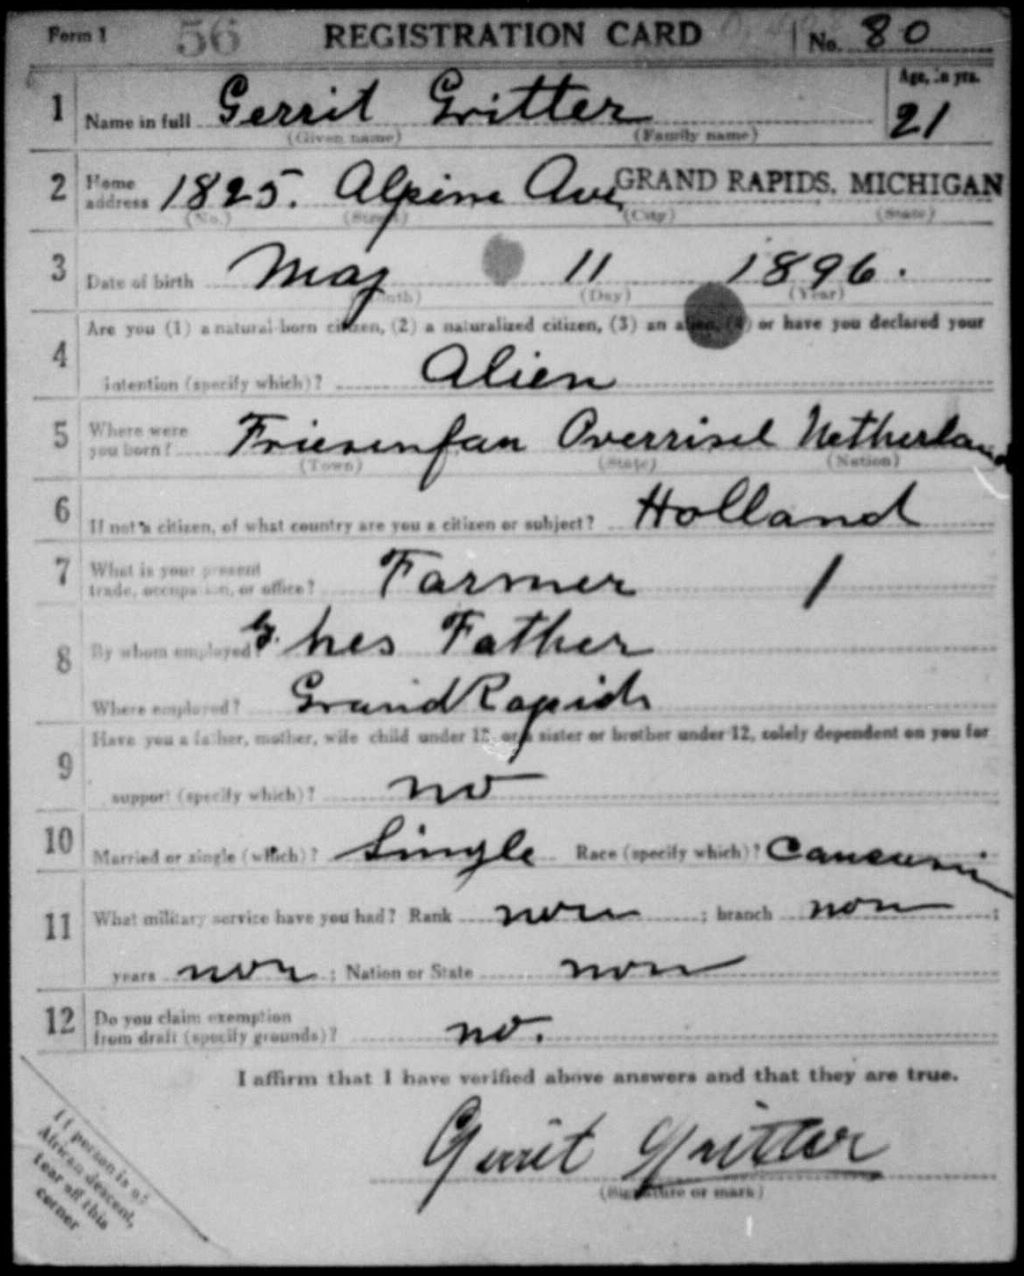 Form 1 56 REGISTRATION CARD No. 80
1 Name in full Gerrit Gritter Age, in yrs. 21
(Given name) (Family name)
2 Home address 1825. Alpine Ave GRAND RAPIDS, MICHIGAN
(No.) (Street) (City) (State)
3 Date of birth May 11 1896.
(Month) (Day) (Year)
4 Are you (1) a natural-born citizen, (2) a naturalized citizen, (3) an alien, (4) or have you declared your
intention (specify which)? Alien
5 Where were you born? Friesenfan Overrisel Netherland
(Town) (State) (Nation)
6 If not a citizen, of what country are you a citizen or subject? Holland
7 What is your present trade, occupation, or office? Farmer 1
8 By whom employed? hes Father
Where employed? Grand Rapids
9 Have you a father, mother, wife child under 12, or a sister or brother under 12, solely dependent on you for
support (specify which)? no
10 Married or single (which)? Single Race (specify which)?
11 What military service have you had? Rank non ; branch non ;
years non ; Nation or State non
12 Do you claim exemption from draft (specify grounds)? no.
I affirm that I have verified above answers and that they are true.
Gerrit Gritter
(Signature or mark)
If person is of
African descent,
tear off this
corner